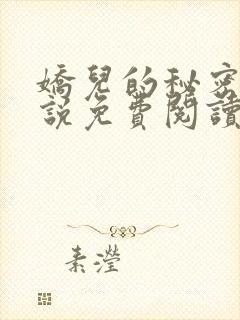 嬌兒的秘密
說免費閱讀
素瀅